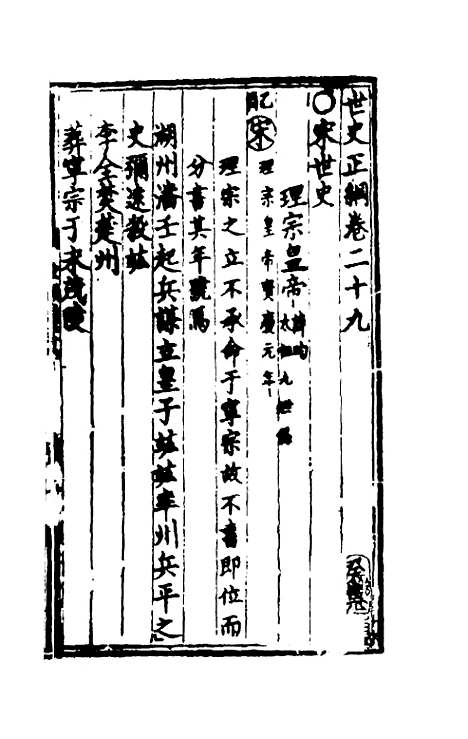 世史正綱卷二十九
○宋世史
理宗皇帝 諱昀太祖九世孫
乙酉 宋 理宗皇帝寳慶元年
理宗之立不承命于寧宗故不書即位而
分書其年號焉
湖州潘壬起兵謀立皇子竑竑率州兵平之
史彌遠殺竑
李全焚楚州
葬寧宗于永茂陵